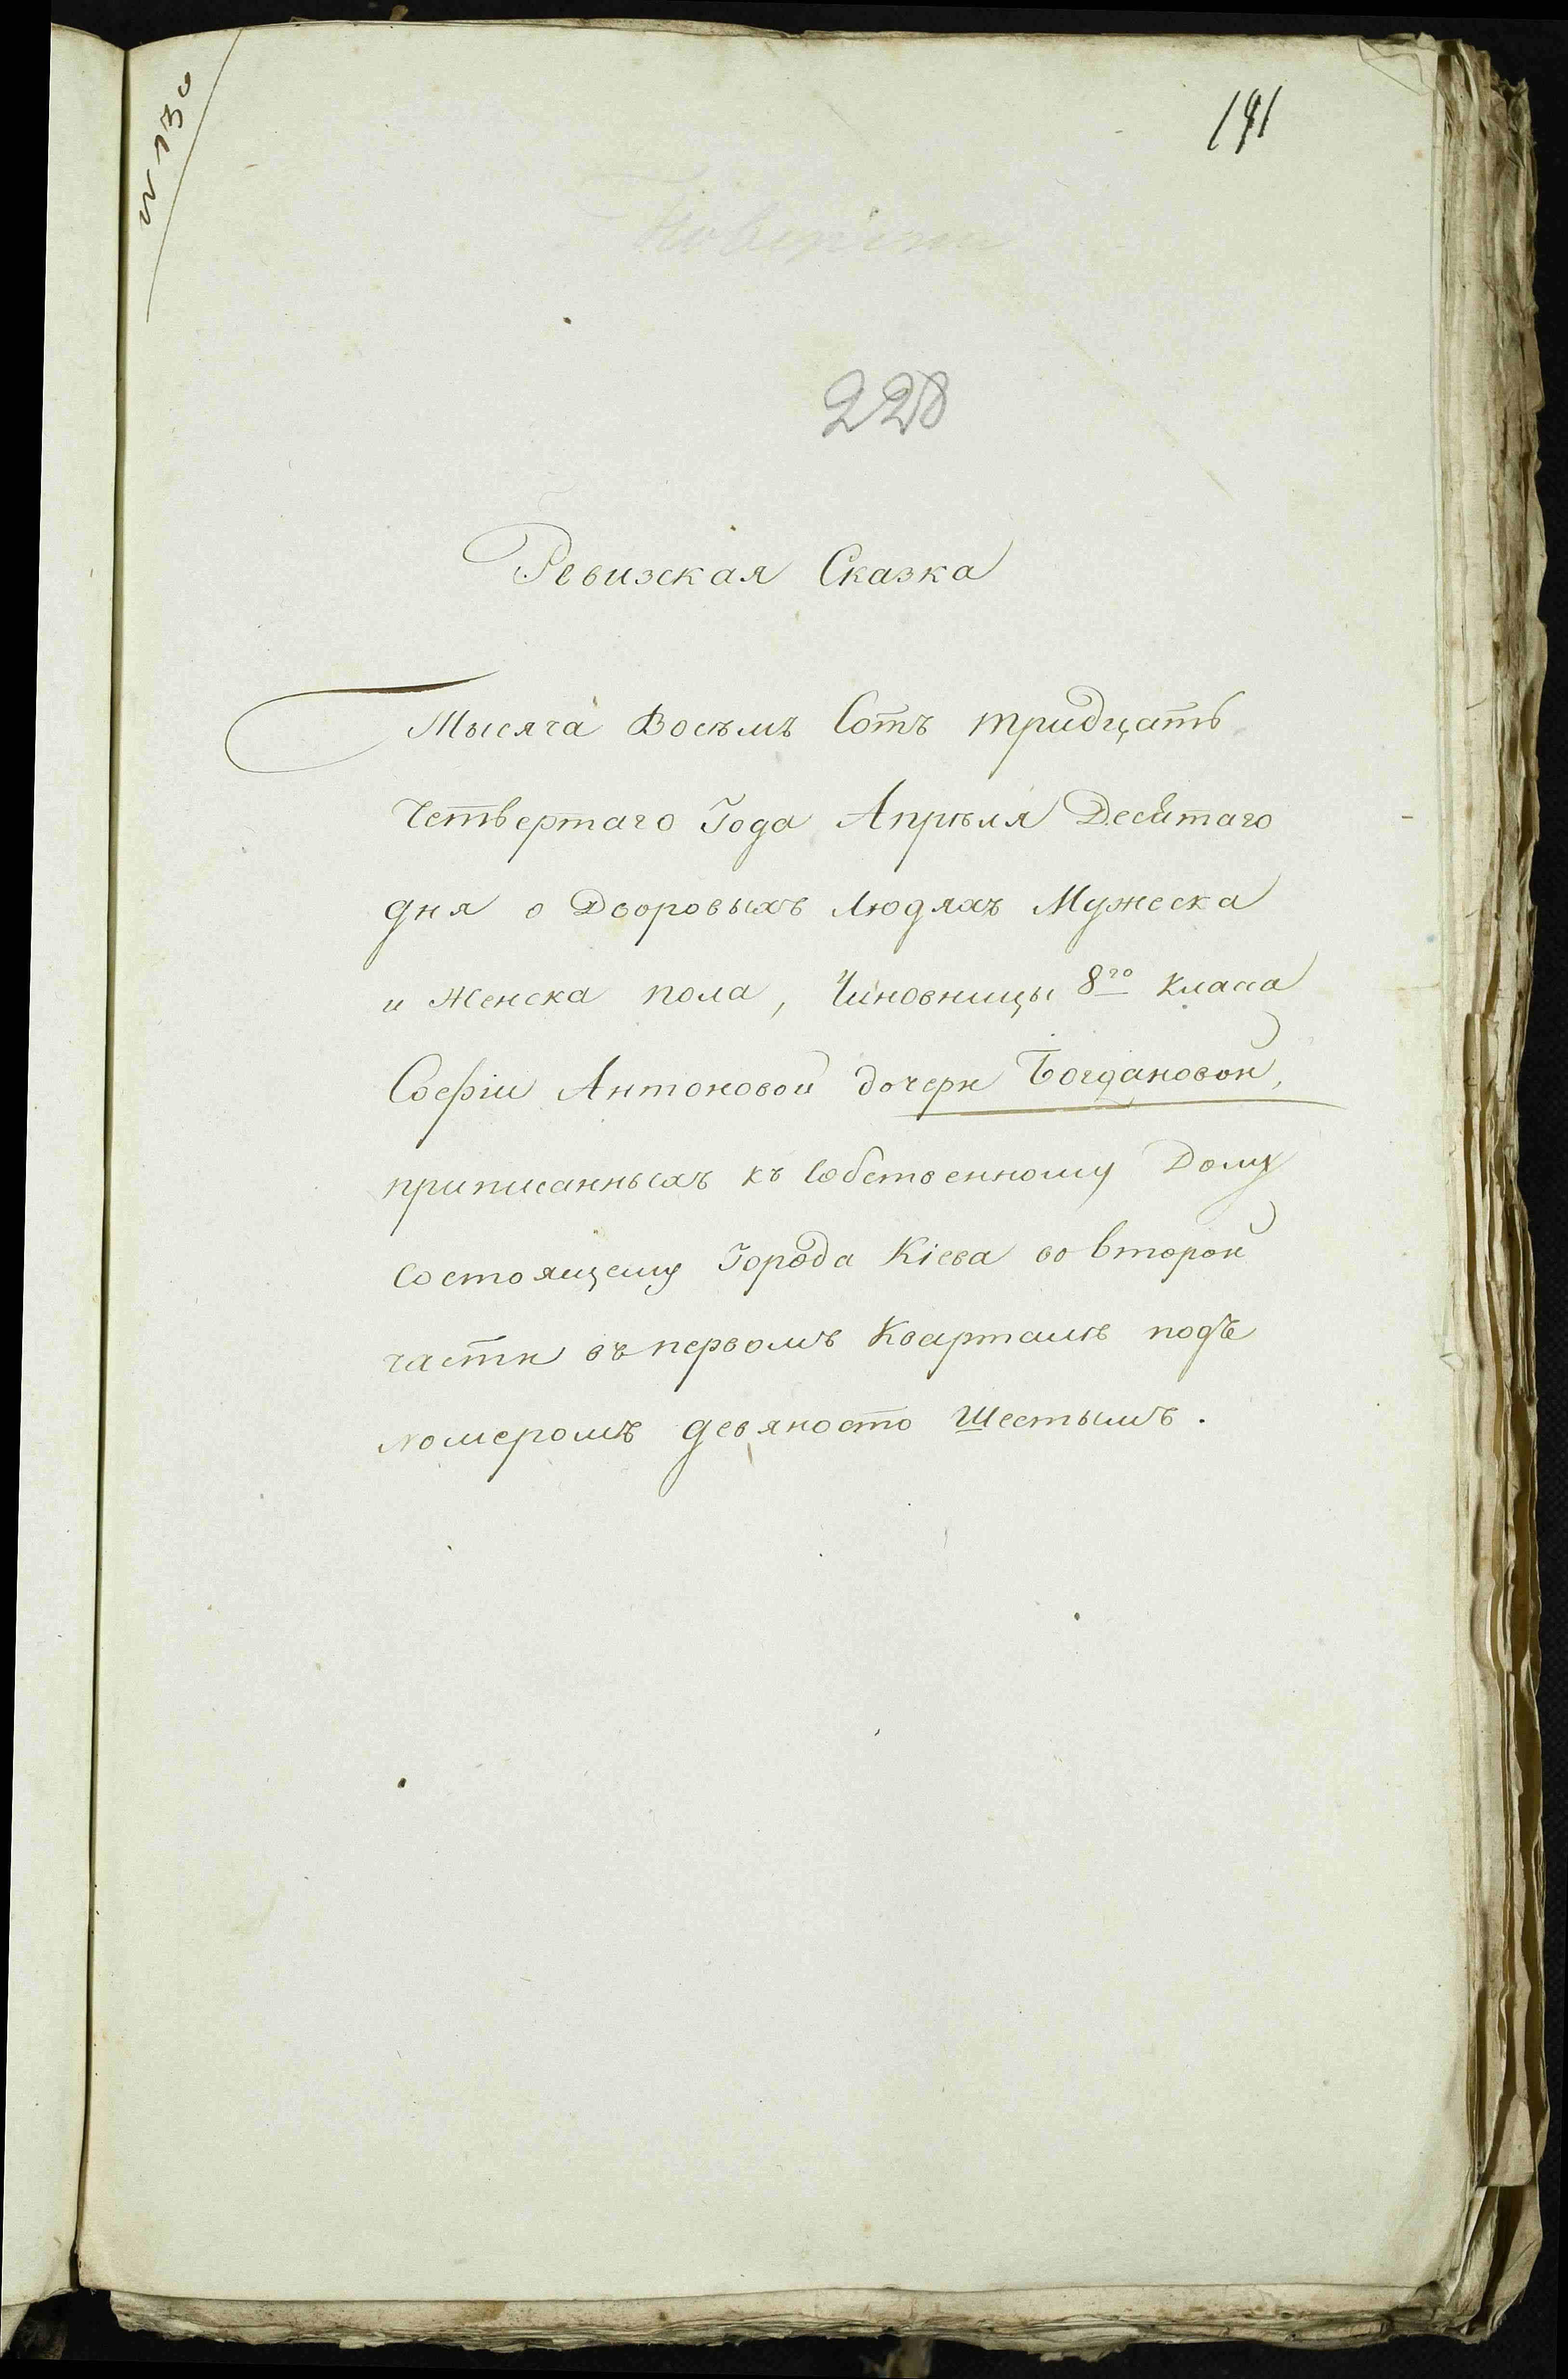 N 130
191
228
Ревизская Сказка
Тысяча Восѣмъ Сотъ тридцать
четвертаго Года Апрѣля Десятаго
дня о Дворовыхъ Людяхъ Мужеска
и Женска пола, Чиновницы 8го класа
Софіи Антоновой дочери Богдановой,
приписанныхъ къ собственному Дому
состоящему Города Кіева во второй
части въ первомъ Кварталѣ подъ
номеромъ девяносто Шестымъ.